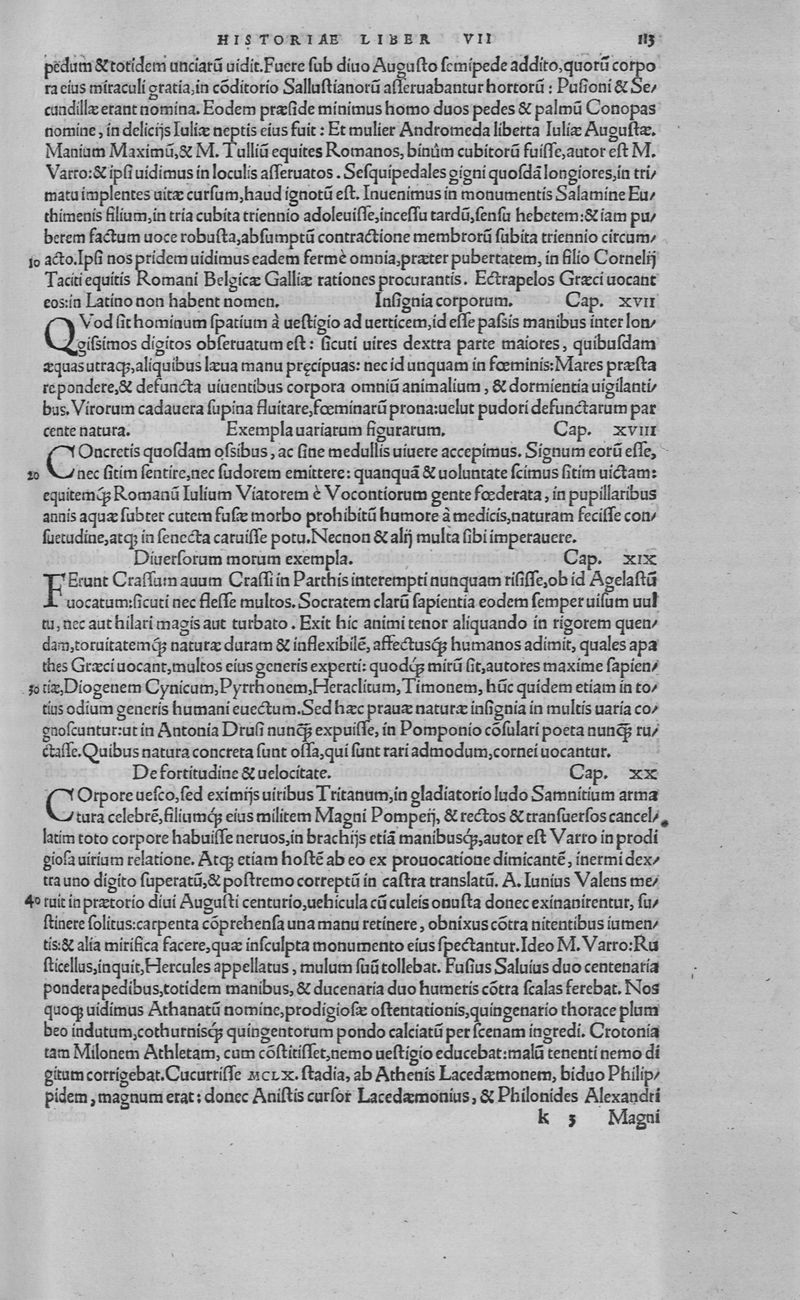 HISTORIAE LIBER VII 113
pedum & totidem unciarū uidit. Fuere ſub diuo Auguſto ſemipede addito, quorū corpo
ra eius miraculi gratia, in cōditorio Salluſtianorū aſſeruabantur hortorū: Puſioni & Se/
cundillæ erant nomina. Eodem præſide minimus homo duos pedes & palmū Conopas
nomine, in delicijs Iuliæ neptis eius fuit: Et mulier Andromeda liberta Iuliæ Auguſtæ.
Manium Maximū, & M. Tulliū equites Romanos, binûm cubitorū fuiſſe, autor eſt M.
Varro: & ipſi uidimus in loculis aſſeruatos. Seſquipedales gigni quoſdā longiores, in tri/
matu implentes uitæ curſum, haud ignotū eſt. Inuenimus in monumentis Salamine Eu/
thimenis filium, in tria cubita triennio adoleuiſſe, inceſſu tardū, ſenſu hebetem: & iam pu/
berem factum uoce robuſta, abſumptū contractione membrorū ſubita triennio circum/
10 acto. Ipſi nos pridem uidimus eadem fermè omnia, præter pubertatem, in filio Cornelij
Taciti equitis Romani Belgicæ Galliæ rationes procurantis. Ectrapelos Græci uocant
eos: in Latino non habent nomen. Inſignia corporum. Cap. XVII
QVod ſit hominum ſpatium à ueſtigio ad uerticem, id eſſe paſsis manibus inter lon/
giſsimos digitos obſeruatum eſt: ſicuti uires dextra parte maiores, quibuſdam
æquas utraq;, aliquibus læua manu pręcipuas: nec id unquam in fœminis: Mares præſta
re pondere, & defuncta uiuentibus corpora omniū animalium, & dormientia uigilanti/
bus. Virorum cadauera ſupina fluitare, fœminarū prona: uelut pudori defunctarum par
cente natura. Exempla uariarum figurarum. Cap. XVIII
COncretis quoſdam oſsibus, ac ſine medullis uiuere accepimus. Signum eorū eſſe,
20 nec ſitim ſentire, nec ſudorem emittere: quanquā & uoluntate ſcimus ſitim uictam:
equitemq́; Romanū Iulium Viatorem è Vocontiorum gente fœderata, in pupillaribus
annis aquæ ſubter cutem fuſæ morbo prohibitū humore à medicis, naturam feciſſe con/
ſuetudine, atq; in ſenecta caruiſſe potu. Necnon & alij multa ſibi imperauere.
Diuerſorum morum exempla. Cap. XIX
FErunt Craſſum auum Craſſi in Parthis interempti nunquam riſiſſe, ob id Agelaſtū
uocatum: ſicuti nec fleſſe multos. Socratem clarū ſapientia eodem ſemper uiſum uul
tu, nec aut hilari magis aut turbato. Exit hic animi tenor aliquando in rigorem quen/
dam, toruitatemq́; naturæ duram & inflexibilē, affectusq́; humanos adimit, quales apa
thes Græci uocant, multos eius generis experti: quodq́; mirū ſit, autores maxime ſapien/
30 tiæ, Diogenem Cynicum, Pyrrhonem, Heraclitum, Timonem, hūc quidem etiam in to/
tius odium generis humani euectum. Sed hæc prauæ naturæ inſignia in multis uaria co/
gnoſcuntur: ut in Antonia Druſi nunq́; expuiſſe, in Pomponio cōſulari poeta nunq́; ru/
ctaſſe. Quibus natura concreta ſunt oſſa, qui ſunt rari admodum, cornei uocantur.
De fortitudine & uelocitate. Cap. XX
COrpore ueſco, ſed eximijs uiribus Tritanum, in gladiatorio ludo Samnitium arma
tura celebrē, filiumq́; eius militem Magni Pompeij, & rectos & tranſuerſos cancel/
latim toto corpore habuiſſe neruos, in brachijs etiā manibusq́;, autor eſt Varro in prodi
gioſa uirium relatione. Atq; etiam hoſtē ab eo ex prouocatione dimicantē, inermi dex/
tra uno digito ſuperatū, & poſtremo correptū in caſtra translatū. A. Iunius Valens me/
40 ruit in prætorio diui Auguſti centurio, uehicula cū culeis onuſta donec exinanirentur, ſu/
ſtinere ſolitus: carpenta cōprehenſa una manu retinere, obnixus cōtra nitentibus iumen/
tis: & alia mirifica facere, quæ inſculpta monumento eius ſpectantur. Ideo M. Varro: Ru
ſticellus, inquit, Hercules appellatus, mulum ſuū tollebat. Fuſius Saluius duo centenaria
pondera pedibus, totidem manibus, & ducenaria duo humeris cōtra ſcalas ferebat. Nos
quoq; uidimus Athanatū nomine, prodigioſæ oſtentationis, quingenario thorace plum
beo indutum, cothurnisq́; quingentorum pondo calciatū per ſcenam ingredi. Crotonia
tam Milonem Athletam, cum cōſtitiſſet, nemo ueſtigio educebat: malū tenenti nemo di
gitum corrigebat. Cucurriſſe MCLX. ſtadia, ab Athenis Lacedæmonem, biduo Philip/
pidem, magnum erat: donec Aniſtis curſor Lacedæmonius, & Philonides Alexandri
k 3 Magni